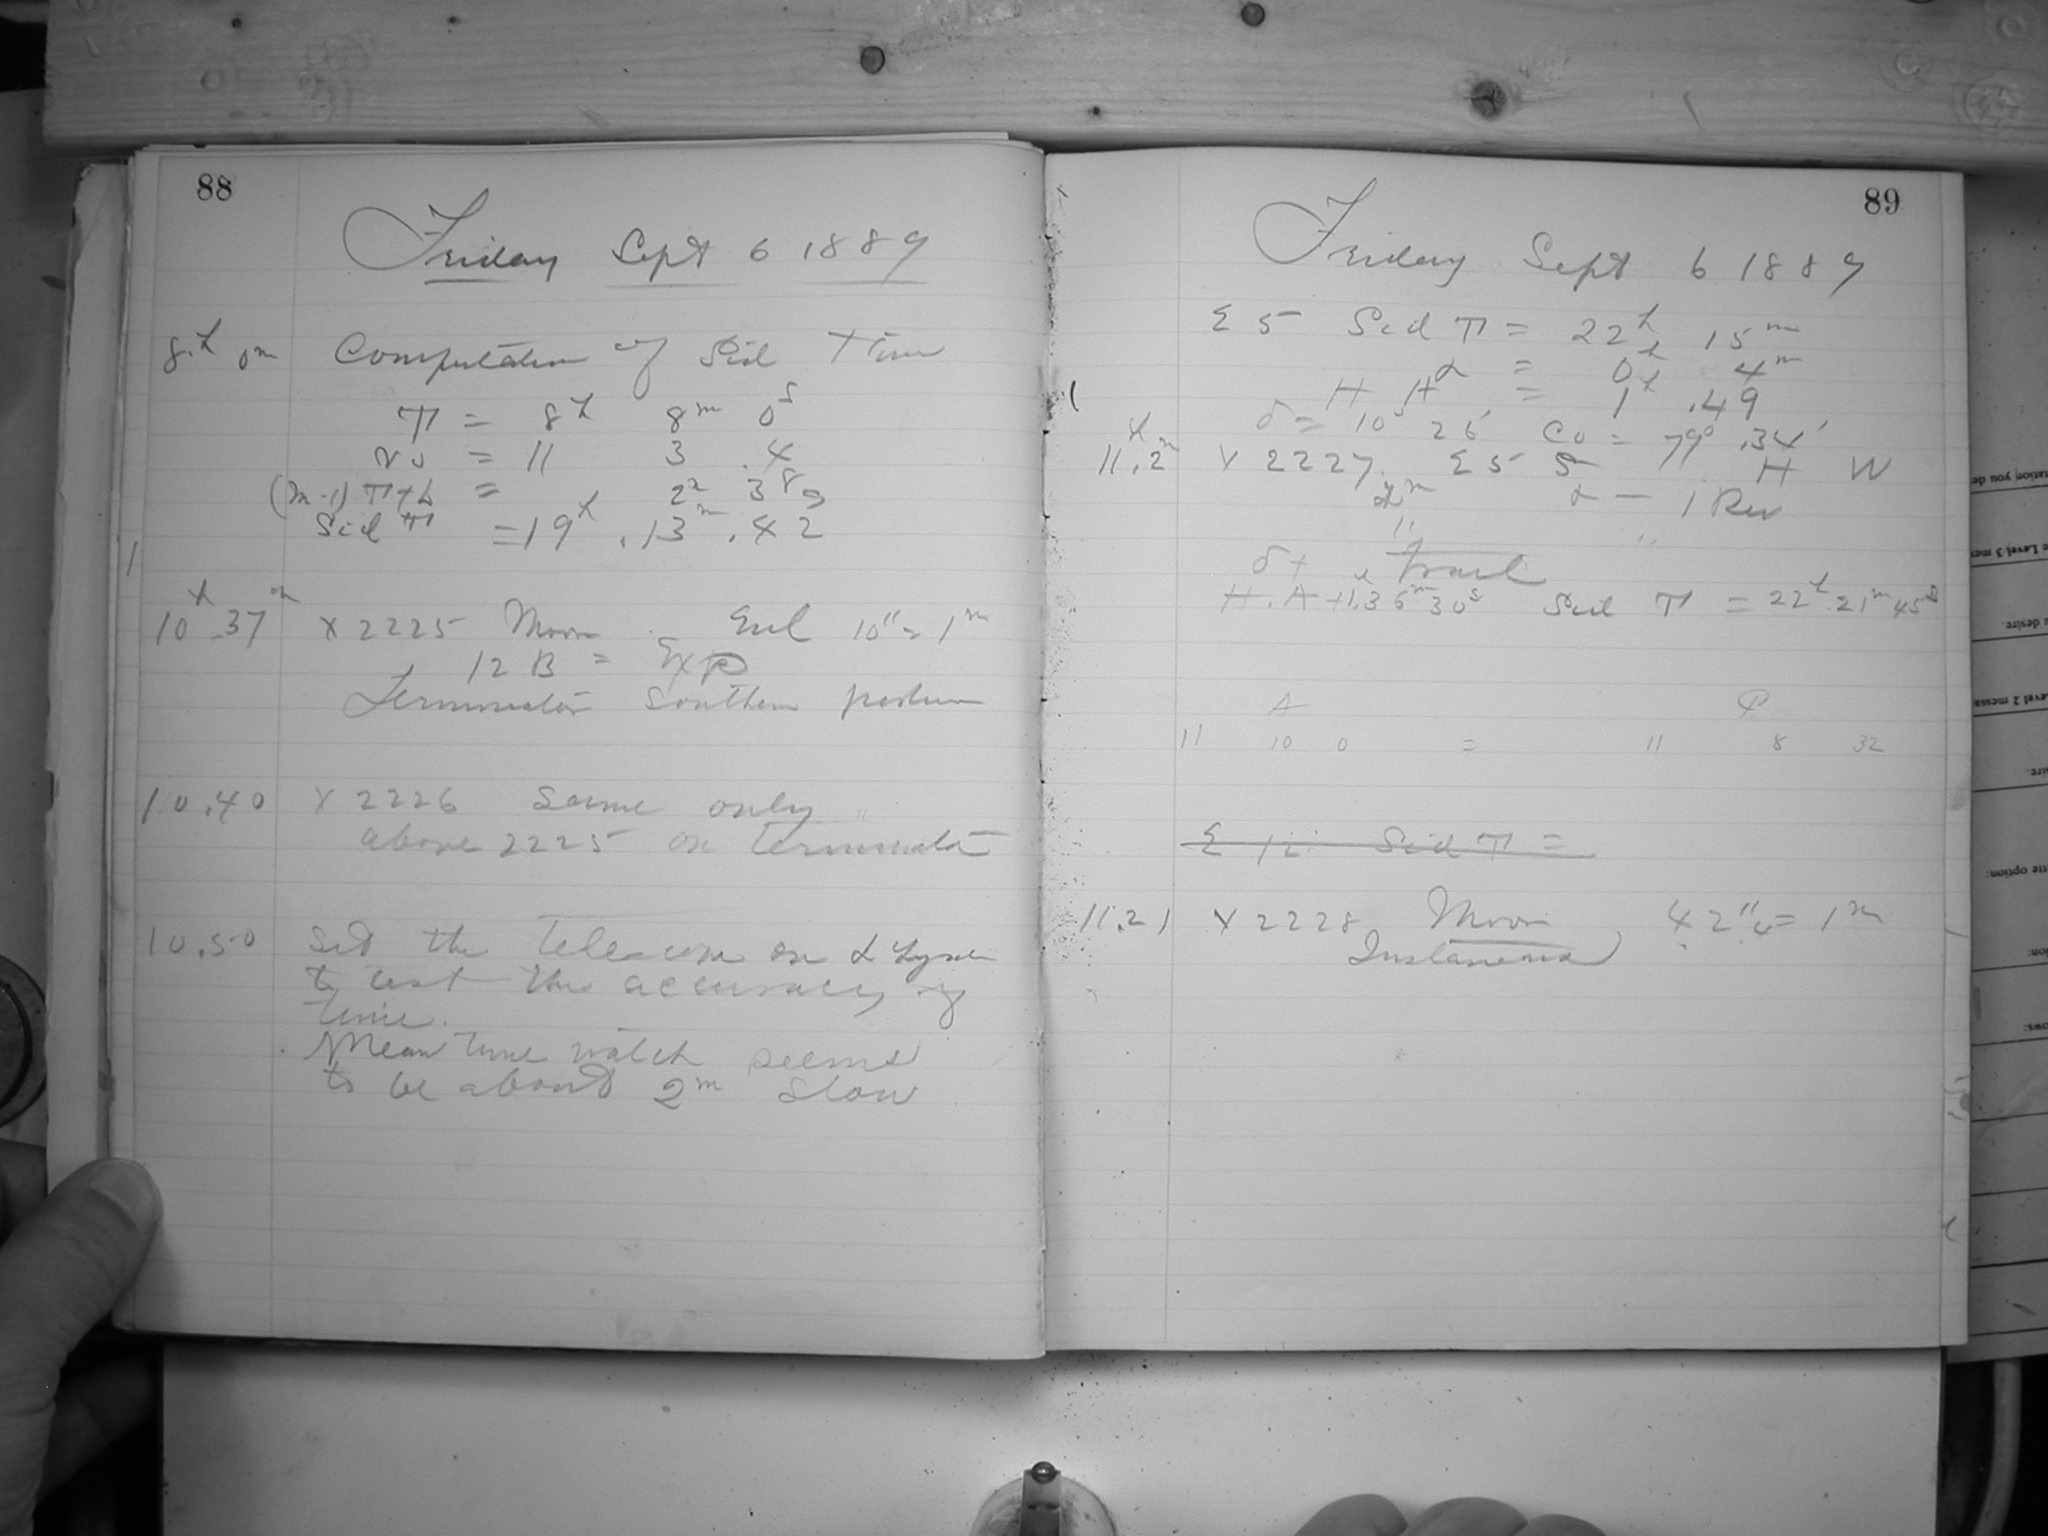 88
Friday Sept 6 1889
8.h 0m Computation of Sid Time
T = 8h 8m 0s
= 11 3 .4
(m-1) T+L = 2m 38s
Sid T = 19h . 13m . 42
10h .37m X 2225 Moon Enl 10" = 1m
12 B = Exp
Terminator Southern portion
10.40 X 2226 Same only
above 2225 on Terminator
10.50 Set the Telescope on α Lyrae
to test the accuracy of
time.
Mean time watch seems
to be about 2m slow
89
Friday Sept 6 1889
Σ 5 Sid T = 22h 15m
α = 0h 4m
H A = 1h .49
δ = 10° 26' Co = 79° .34'
11h.2m X 2227. Σ 5 S H W
2m α — 1 Rev
11 "
δ + Trail
H.A + 1h.36m30s Sid T = 22h.21m45s
A P
11 10 0 = 11 8 32
Σ 12 Sid T =
11.21 X 2228 Moon 42" = 1m
Instaneous